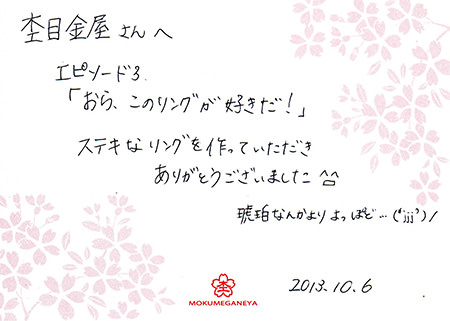 杢目金屋さんへ
エピソード3.
「おら、このリングが好きだ！」
ステキなリングを作っていただき
ありがとうございました ^^
琥珀なんかより よっぽど…('jjj')/
MOKUMEGANEYA
2013.10.6